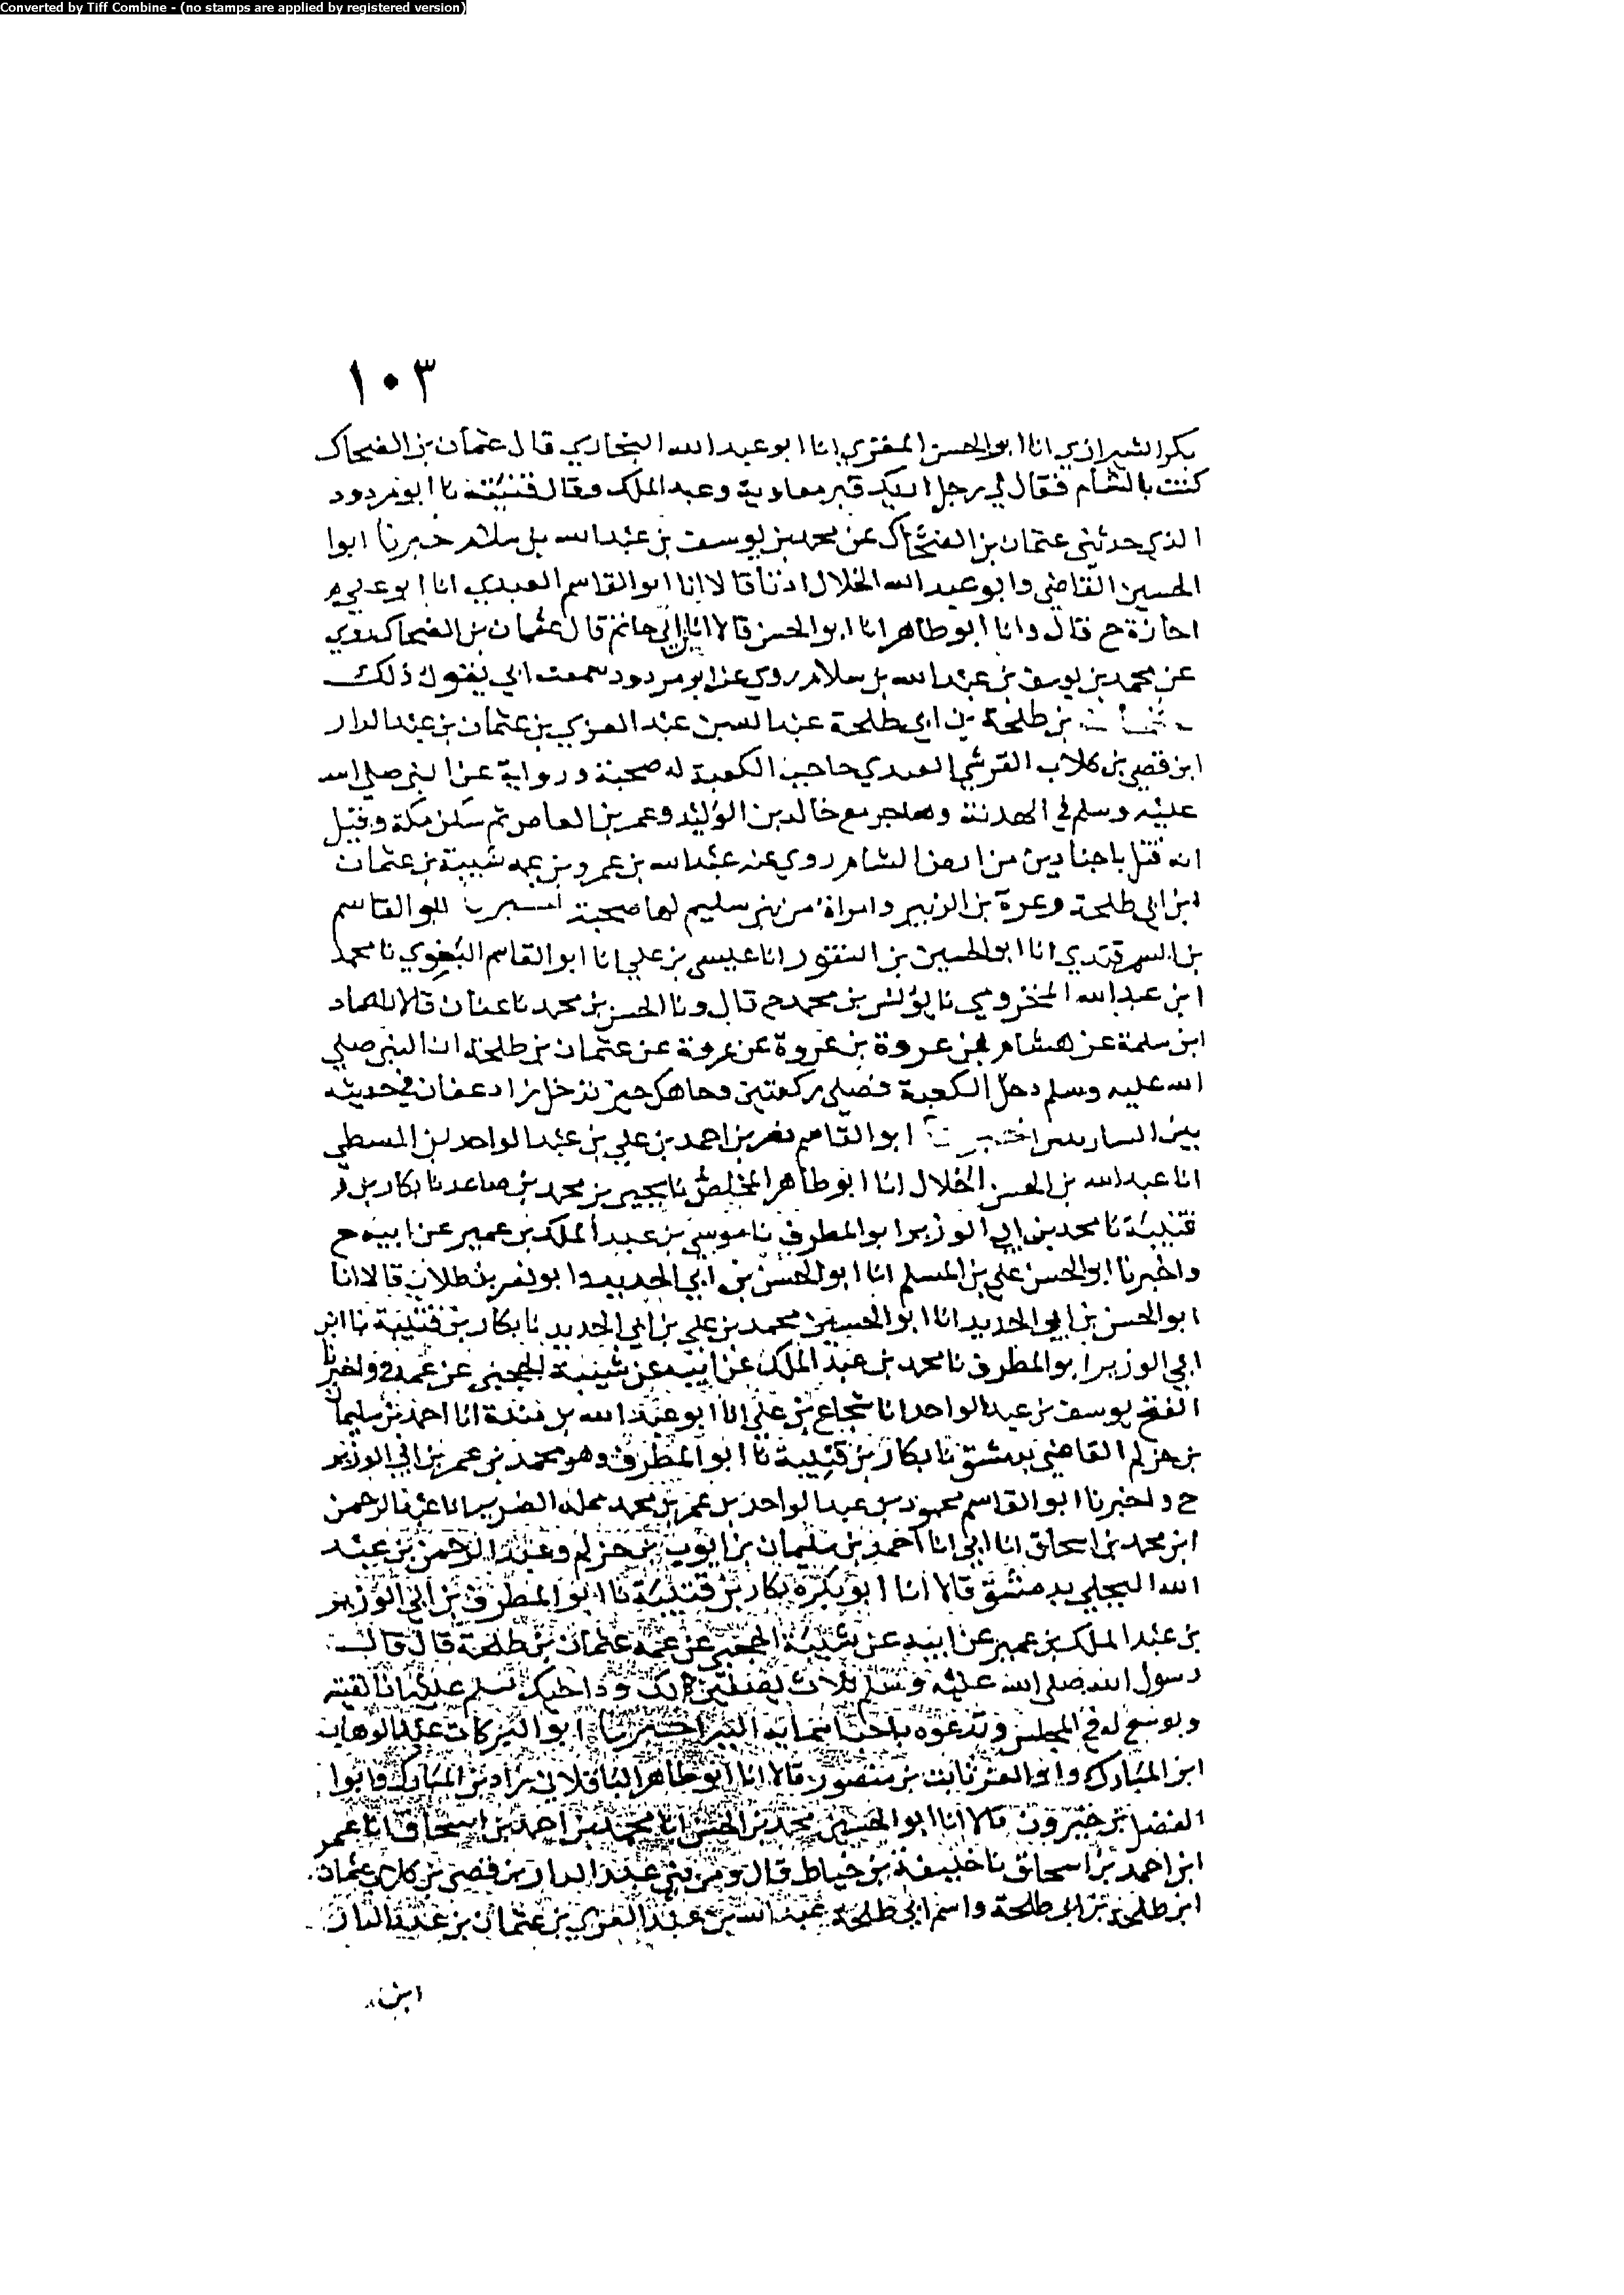 Converted by Tiff Combine - (no stamps are applied by registered version)
١٠٣
بكر الشيرازي انا ابو الحسن المقري انا ابو عبد الله البخاري قال عثمان بن الضحاك
كنت بالشام فقال لي رجل قبر معاوية وعبد الملك وقال قتيبة نا ابو مردود
الذي حدثني عثمان بن الضحاك عن محمد بن يوسف بن عبد الله بن سلام خبرنا ابوا
الحسين القاضي وابو عبد الله الخلال اذنا قالا انا ابو القاسم العبدي انا ابو علي
اجازة ح قال وانا ابو طاهر انا ابو الحسن قالا انا ابن ابي حاتم قال عثمان بن الضحاك روي
عن محمد بن يوسف بن عبد الله بن سلام روي عنه ابو مردود سمعت ابي يقول ذلك
بن طلحة بن ابي طلحة عبد الله بن عبد العزي بن عثمان بن عبد الدار
ابن قصي بن كلاب القرشي العبدي حاجب الكعبة له صحبة ورواية عن النبي صلي الله
عليه وسلم في الهدنة وهاجر مع خالد بن الوليد وعمر بن العاص ثم سكن مكة وقيل
انه قتل باجنادين من ارض الشام روي عنه عبد الله بن عمر وبن عمه شيبة بن عثمان
ابن ابي طلحة وعروة بن الزبير وامراة من بني سليم لها صحبة ابو القاسم
بن السمرقندي انا ابو الحسين بن النقور انا عيسي بن علي انا ابو القاسم البغوي نا محمد
ابن عبد الله المخزومي نا يونس بن محمد ح قال ونا الحسن بن محمد نا عفان قالا نا حماد
ابن سلمة عن هشام بن عروة بن عروة عن عروة عن عثمان بن طلحة ان النبي صلي
الله عليه وسلم دخل الكعبة فصلي ركعتين وجاهك حين تدخل زاد عفان في حديثه
بين الساريتين اخبرنا ابو القاسم نصر بن احمد بن علي بن عبد الواحد بن
انا عبد الله بن الحسن الخلال انا ابو طاهر المخلص نا يحيي بن محمد بن صاعد نا بكار بن
قتيبة نا محمد بن ابي الوزير ابو المطرف نا موسي بن عبد الملك بن عمير عن ابيه ح
واخبرنا ابو الحسن علي بن المسلم انا ابو الحسن بن ابي الحديد وابو نصر بن طلاب قالا انا
ابو الحسن بن ابي الحديد انا ابو الحسين محمد بن علي بن ابي الحديد نا بكار بن قتيبة نا ابن
ابي الوزير ابو المطرف نا محمد بن عبد الملك عن ابيه عن شيبة الحجبي عن عمه ح واخبرنا
الفتح يوسف بن عبد الواحد انا شجاع بن علي انا ابو عبد الله بن مندة انا احمد بن سليمان
بن حزلم القاضي بدمشق نا بكار بن قتيبة نا ابو المطرف وهو محمد بن عمر بن ابي الوزير
ح واخبرنا ابو القاسم محمود بن عبد الواحد بن عمر بن محمد انا عبد الرحمن
ابن محمد بن اسحاق انا ابي انا احمد بن سليمان بن ايوب بن حزلم وعبد الرحمن بن عبد
الله البجلي بدمشق قالا انا ابو بكرة بكار بن قتيبة نا ابو المطرف بن ابي الوزير
بن عبد الملك بن عمير عن ابيه عن شيبة الحجبي عن عمه عثمان بن طلحة قال قال
رسول الله صلي الله عليه وسلم ثلاث يصفين لك ود اخيك تسلم عليه اذا لقيته
وتوسع له في المجلس وتدعوه باحب اسمايه اليه اخبرنا ابو البركات عبد الوهاب
ابن المبارك وابو العز ثابت بن منصور قالا انا ابو طاهر الباقلاني زاد بن المبارك وابوا
الفضل بن خيرون قالا انا ابو الحسين محمد بن الحسن انا محمد بن احمد بن اسحاق انا عمر
ابن احمد بن اسحاق نا خليفة بن خياط قال ومن بني عبد الدار بن قصي بن كلاب عثمان
ابن طلحة بن ابي طلحة واسم ابي طلحة عبد الله بن عبد العزي بن عثمان بن عبد الدار
ابن